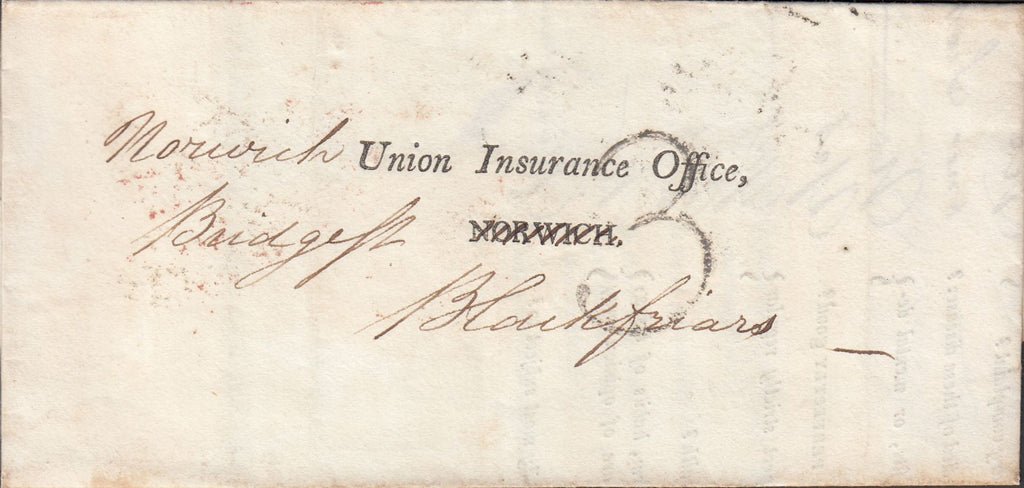 Norwich Union Insurance Office,
Bridge St NORWICH.
Blackfriars
3